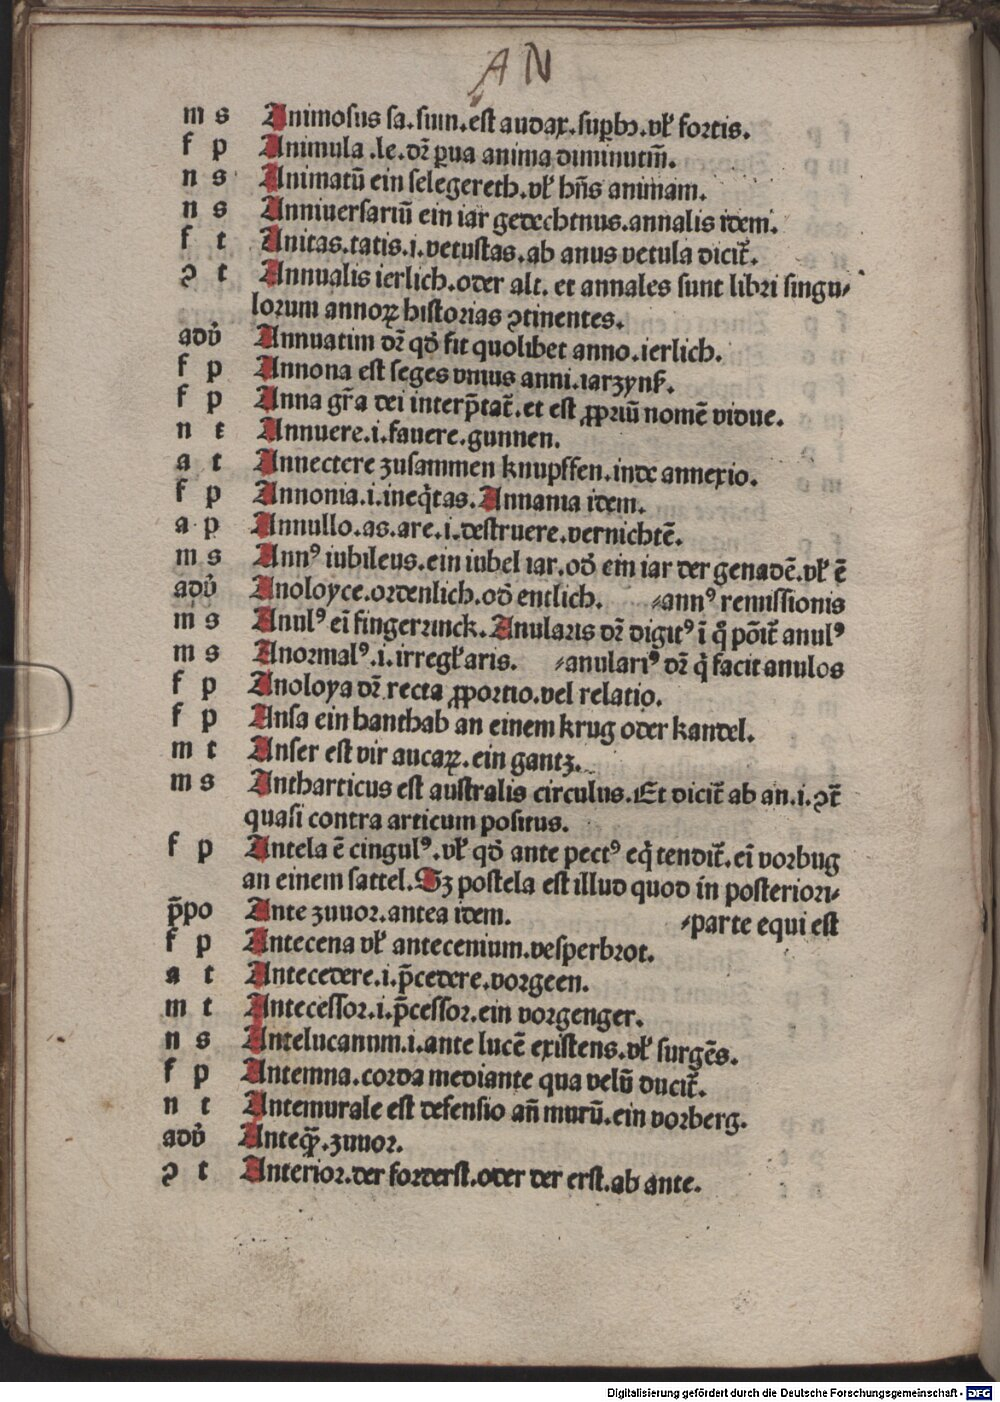 AN
m s Animosus sa.sum.est audax.suꝑbꝰ.vꝉ fortis.
f p Animula .le.dr̄ ꝑua anima diminutiū.
n s Animatū ein selegereth.vꝉ hn̄s animam.
n s Anniuersariū ein iar gedechtnus.annalis idem.
f t Anitas.tatis.i.vetustas.ab anus vetula dicit᷑.
ꝯ t Annualis ierlich.oder alt. et annales sunt libri singu⸗
lorum annoꝝ historias ꝯtinentes.
adv̓ Annuatim dr̄ qd̓ fit quolibet anno.ierlich.
f p Annona est seges vnius anni.iarzynß.
f p Anna gr̄a dei interp̄tat᷑.et est ꝓpriū nomē vidue.
n t Annuere.i.fauere.gunnen.
a t Annectere zusammen knupffen.inde annexio.
f p Annonia.i.ineq̇tas.Annania idem.
a p Annullo.as.are.i.destruere.vernichtē.
m s Annꝰ iubileus.ein iubel iar.od̓ ein iar der genadē.vꝉ ē
adv̓ Anoloyce.ordenlich.od̓ entlich. ⸗annꝰ remissionis
m s Anulꝰ eī fingerrinck.Anularis dr̄ digitꝰ ī q̊ pōit᷑ anulꝰ
m s Anormalꝰ.i.irregꝉaris. ⸗anulariꝰ dr̄ q̇ facit anulos
f p Anoloya dr̄ recta ꝓportio.vel relatio.
f p Ansa ein hanthab an einem krug oder kandel.
m t Anser est vir aucaꝝ.ein gantz.
m s Antharticus est australis circulus.Et dicit᷑ ab an.i.ꝯt᷑
quasi contra articum positus.
f p Antela ē cingulꝰ.vꝉ qd̓ ante pectꝰ eq̇ tendit᷑.eī vorbug
an einem sattel.Sꝫ postela est illud quod in posteriori⸗
p̄po Ante zuuor.antea idem. ⸗parte equi est
f p Antecena vꝉ antecenium.vesperbrot.
a t Antecedere.i.p̄cedere.vorgeen.
m t Antecessor.i.p̄cessor.ein vorgenger.
n s Antelucanum.i.ante lucē existens.vꝉ surgēs.
f p Antemna.corda mediante qua velū ducit᷑.
n t Antemurale est defensio an̄ murū.ein vorberg.
adv̓ Anteqȝ̄.zuuor.
ꝯ t Anterior.der forderst.oder der erst.ab ante.
Digitalisierung gefördert durch die Deutsche Forschungsgemeinschaft - DFG